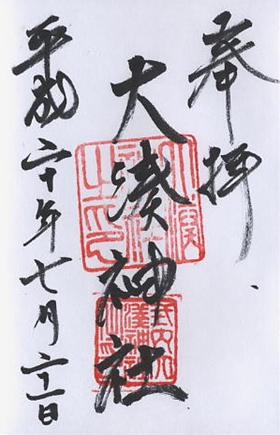 奉拝
大湊神社
平成二十年七月二十一日